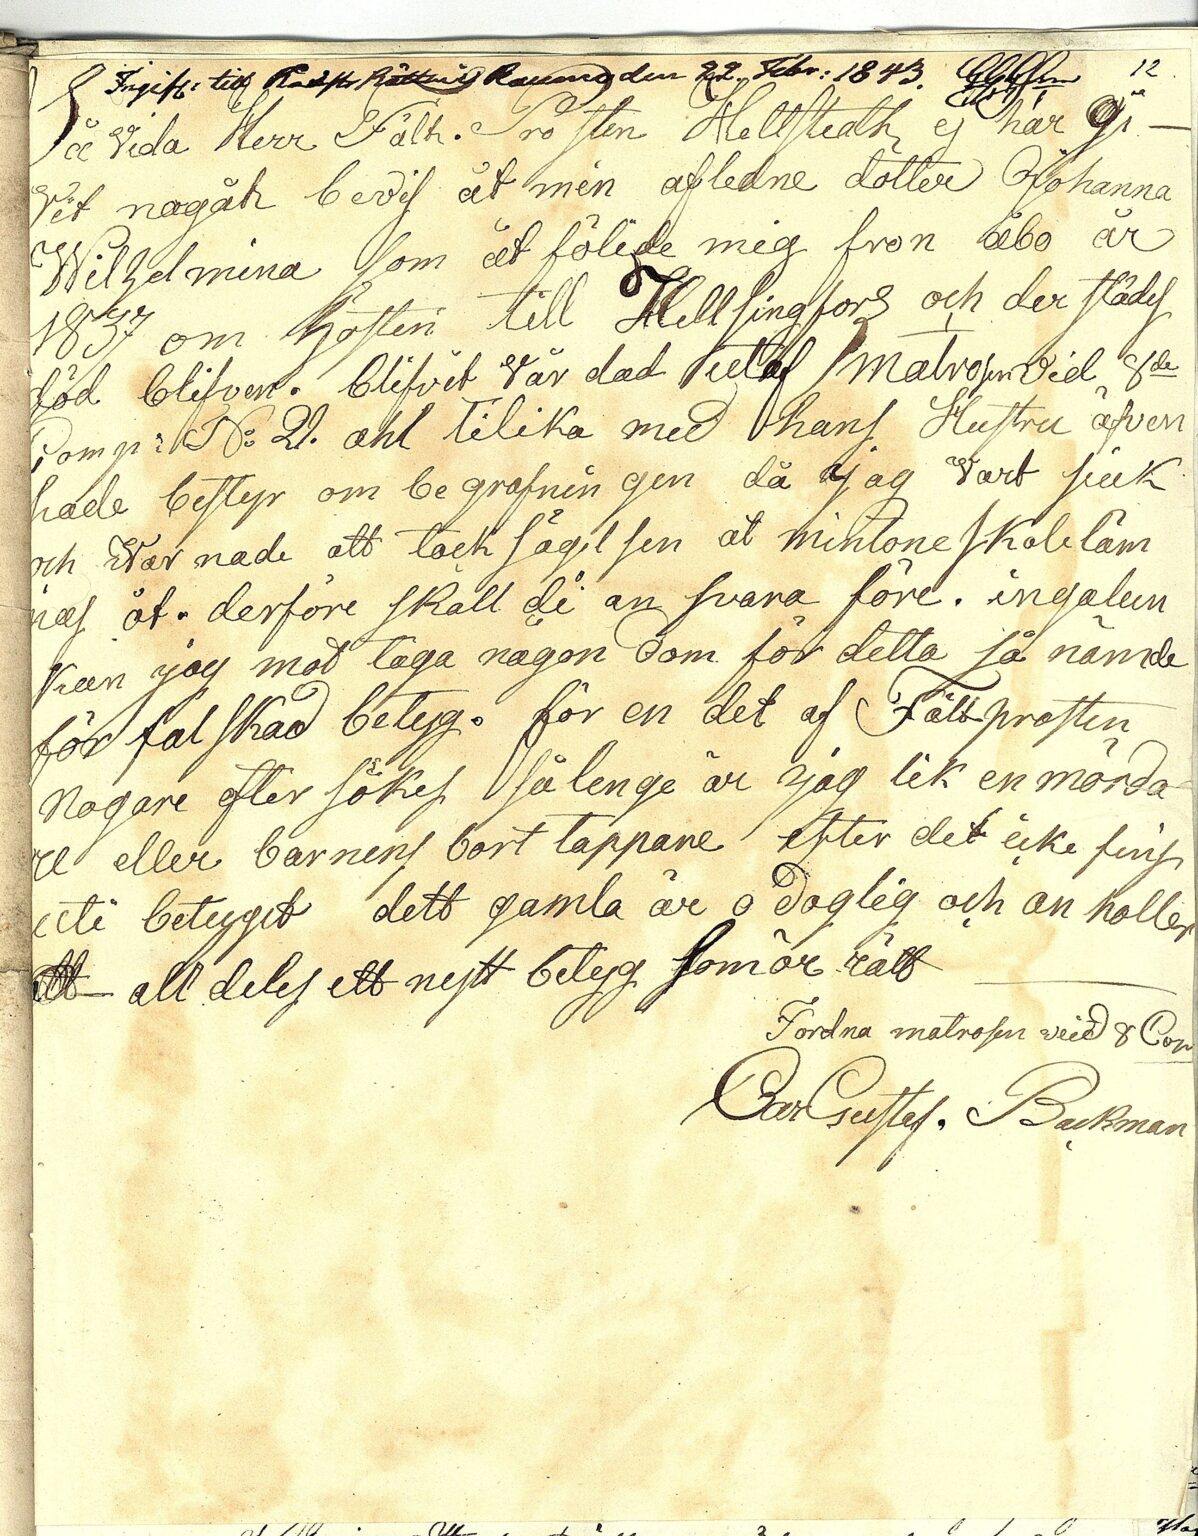 Ingift: till Rådst. Rätten i Raumo den 22 Febr: 1843.
12
Så vida Herr Fälth. Prosten Hellstedth ej har gi-
vit nagåh bevis åt min afledne dotter Johanna
Wilhelmina som åt fölgde mig fron åbo år
1837 om hösten till Hellsingfors och der städes
död blifven. blifvit vårdad utaf matrosen vid 8de
Comp: No: 21. ahl tilika med hans Hustru äfven
hade bestyr om begrafnin gen då jag vart siuk
och varnade att tack sägelsen åt mintone skole läm
nas åt. derföre skall di an svara före. ingalun
kun jag mod taga någon dom för detta så nämde
för falskad betyg. för en det af Fält prosten
nogare efter sökes så lenge är jag lik en mörda
re eller barnens bort tappare efter det icke fins
uti betyget dett gamla är odoglig och an holler
att all deles ett nytt betyg som är rätt
Fordna matrosen veid 8 Com
Car Gustaf. Backman